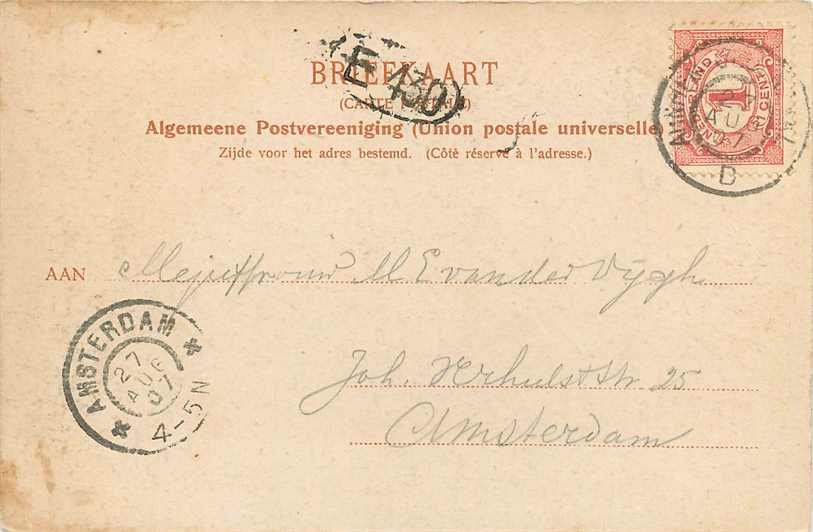 E 430
BRIEFKAART
(CARTE POSTALE)
Algemeene Postvereeniging (Union postale universelle)
Zijde voor het adres bestemd. (Côté réservé à l'adresse.)
NEDERLAND
1
CENT
AUG
07
D
AAN Mejuffrouw M E van der Vijgh
Joh Verhulststr. 25
Amsterdam
AMSTERDAM
27
AUG
07
4-5N